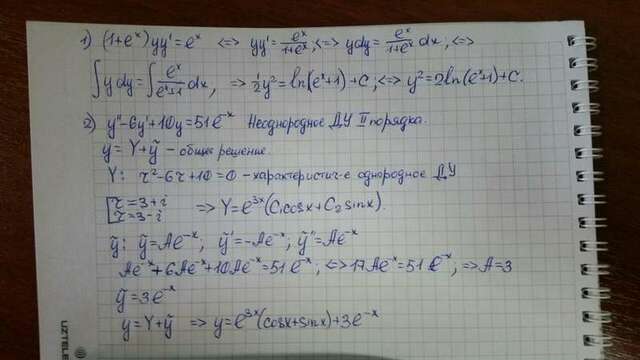 1) (1+eˣ)yy'=eˣ <=> yy'=eˣ/(1+eˣ); <=> ydy=eˣ/(1+eˣ)dx; <=>
∫ydy=∫eˣ/(eˣ+1)dx, => ½y²=ln(eˣ+1)+C; <=> y²=2ln(eˣ+1)+C.
2) y''-6y'+10y=51e⁻ˣ Неоднородное ДУ II порядка.
y=Y+ỹ - общее решение.
Y: r²-6r+10=0 - характеристич-е однородное ДУ
[r=3+i
r=3-i => Y=e³ˣ(C₁cosx+C₂sinx).
ỹ: ỹ=Ae⁻ˣ, ỹ'=-Ae⁻ˣ; ỹ''=Ae⁻ˣ
Ae⁻ˣ+6Ae⁻ˣ+10Ae⁻ˣ=51e⁻ˣ; <=> 17Ae⁻ˣ=51e⁻ˣ; => A=3
ỹ=3e⁻ˣ
y=Y+ỹ => y=e³ˣ(cosx+sinx)+3e⁻ˣ
UZTELE